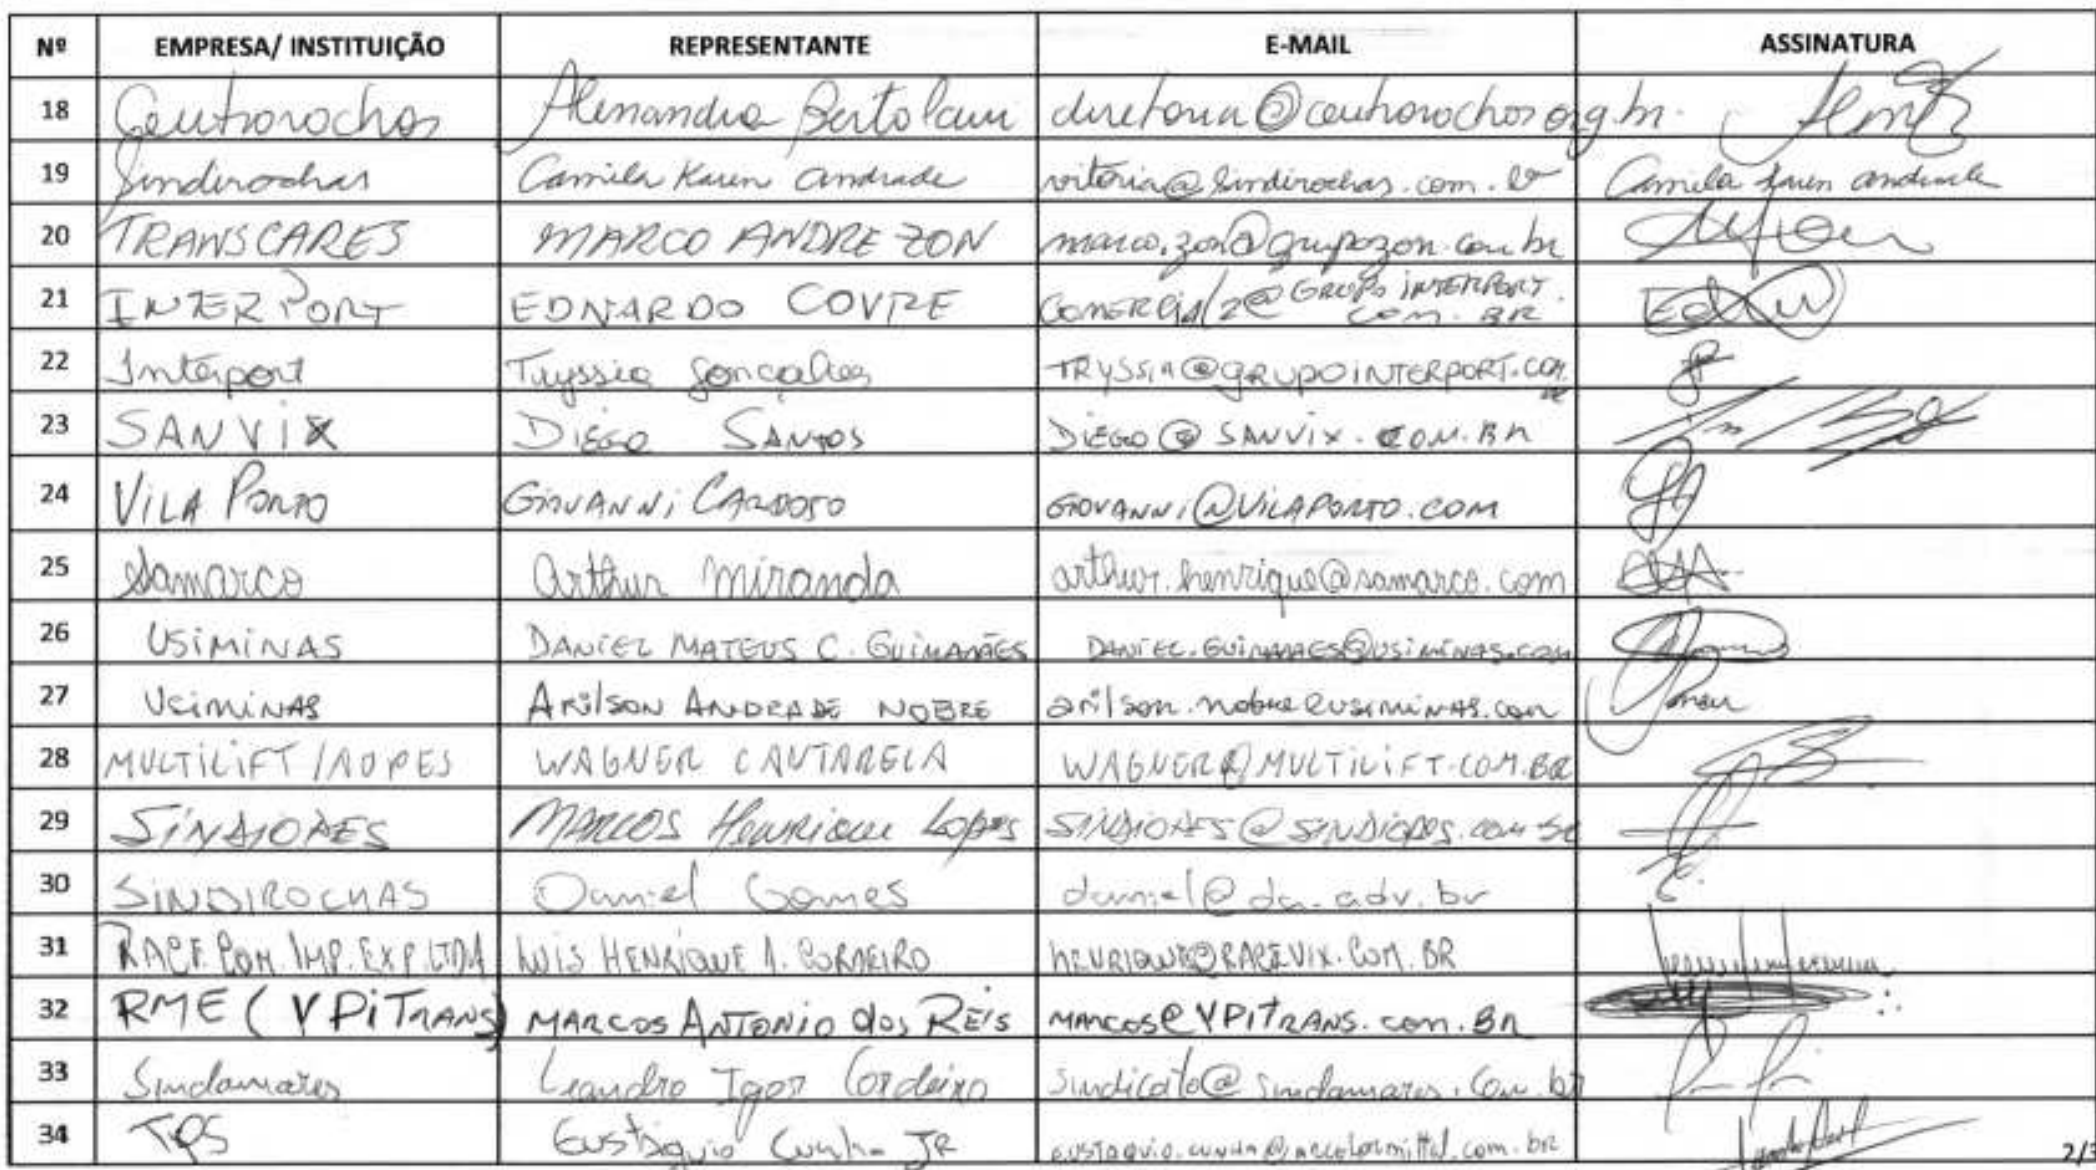 Nº EMPRESA/ INSTITUIÇÃO REPRESENTANTE E-MAIL ASSINATURA
18 Centrorochas Alessandra Bertolani diretoria@centrorochas.org.br
19 Sindirochas Camila Karen Andrade vitoria@sindirochas.com.br Camila Karen Andrade
20 TRANSCARES MARCO ANDRE ZON marco.zon@grupozon.com.br
21 INTERPORT EDNARDO COVRE COMERCIAL2@GRUPO INTERPORT.
COM.BR
22 Interport Tryssia Gonçalves TRYSSIA@GRUPOINTERPORT.COM.
BR
23 SANVIX DIEGO SANTOS DIEGO@SANVIX.COM.BR
24 VILA PORTO GIOVANNI CARDOSO GIOVANNI@VILAPORTO.COM
25 Samarco Arthur Miranda arthur.henrique@samarco.com
26 USIMINAS DANIEL MATEUS C. GUIMARÃES DANIEL.GUIMARAES@USIMINAS.COM
27 Usiminas Arilson ANDRADE NOBRE arilson.nobre@usiminas.com
28 MULTILIFT/AOPES WAGNER CANTARELA WAGNER@MULTILIFT.COM.BR
29 SINDIOPES MARCOS Henrique Lopes SINDIOPES@SINDIOPES.com.br
30 SINDIROCHAS Daniel Gomes daniel@da.adv.br
31 RACE.COM.IMP.EXP.LTDA LUIS HENRIQUE A. HENRIQUE@RACEVIX.COM.BR
32 RME (VPiTRANS) MARCOS ANTONIO dos REIS MARCOS@VPITRANS.com.BR
33 Sindamares Leandro Igor Cordeiro Sindicato@sindamares.com.br
34 TPS Eustáquio Cunha JR EUSTAQUIO.CUNHA@arcelormittal.com.br